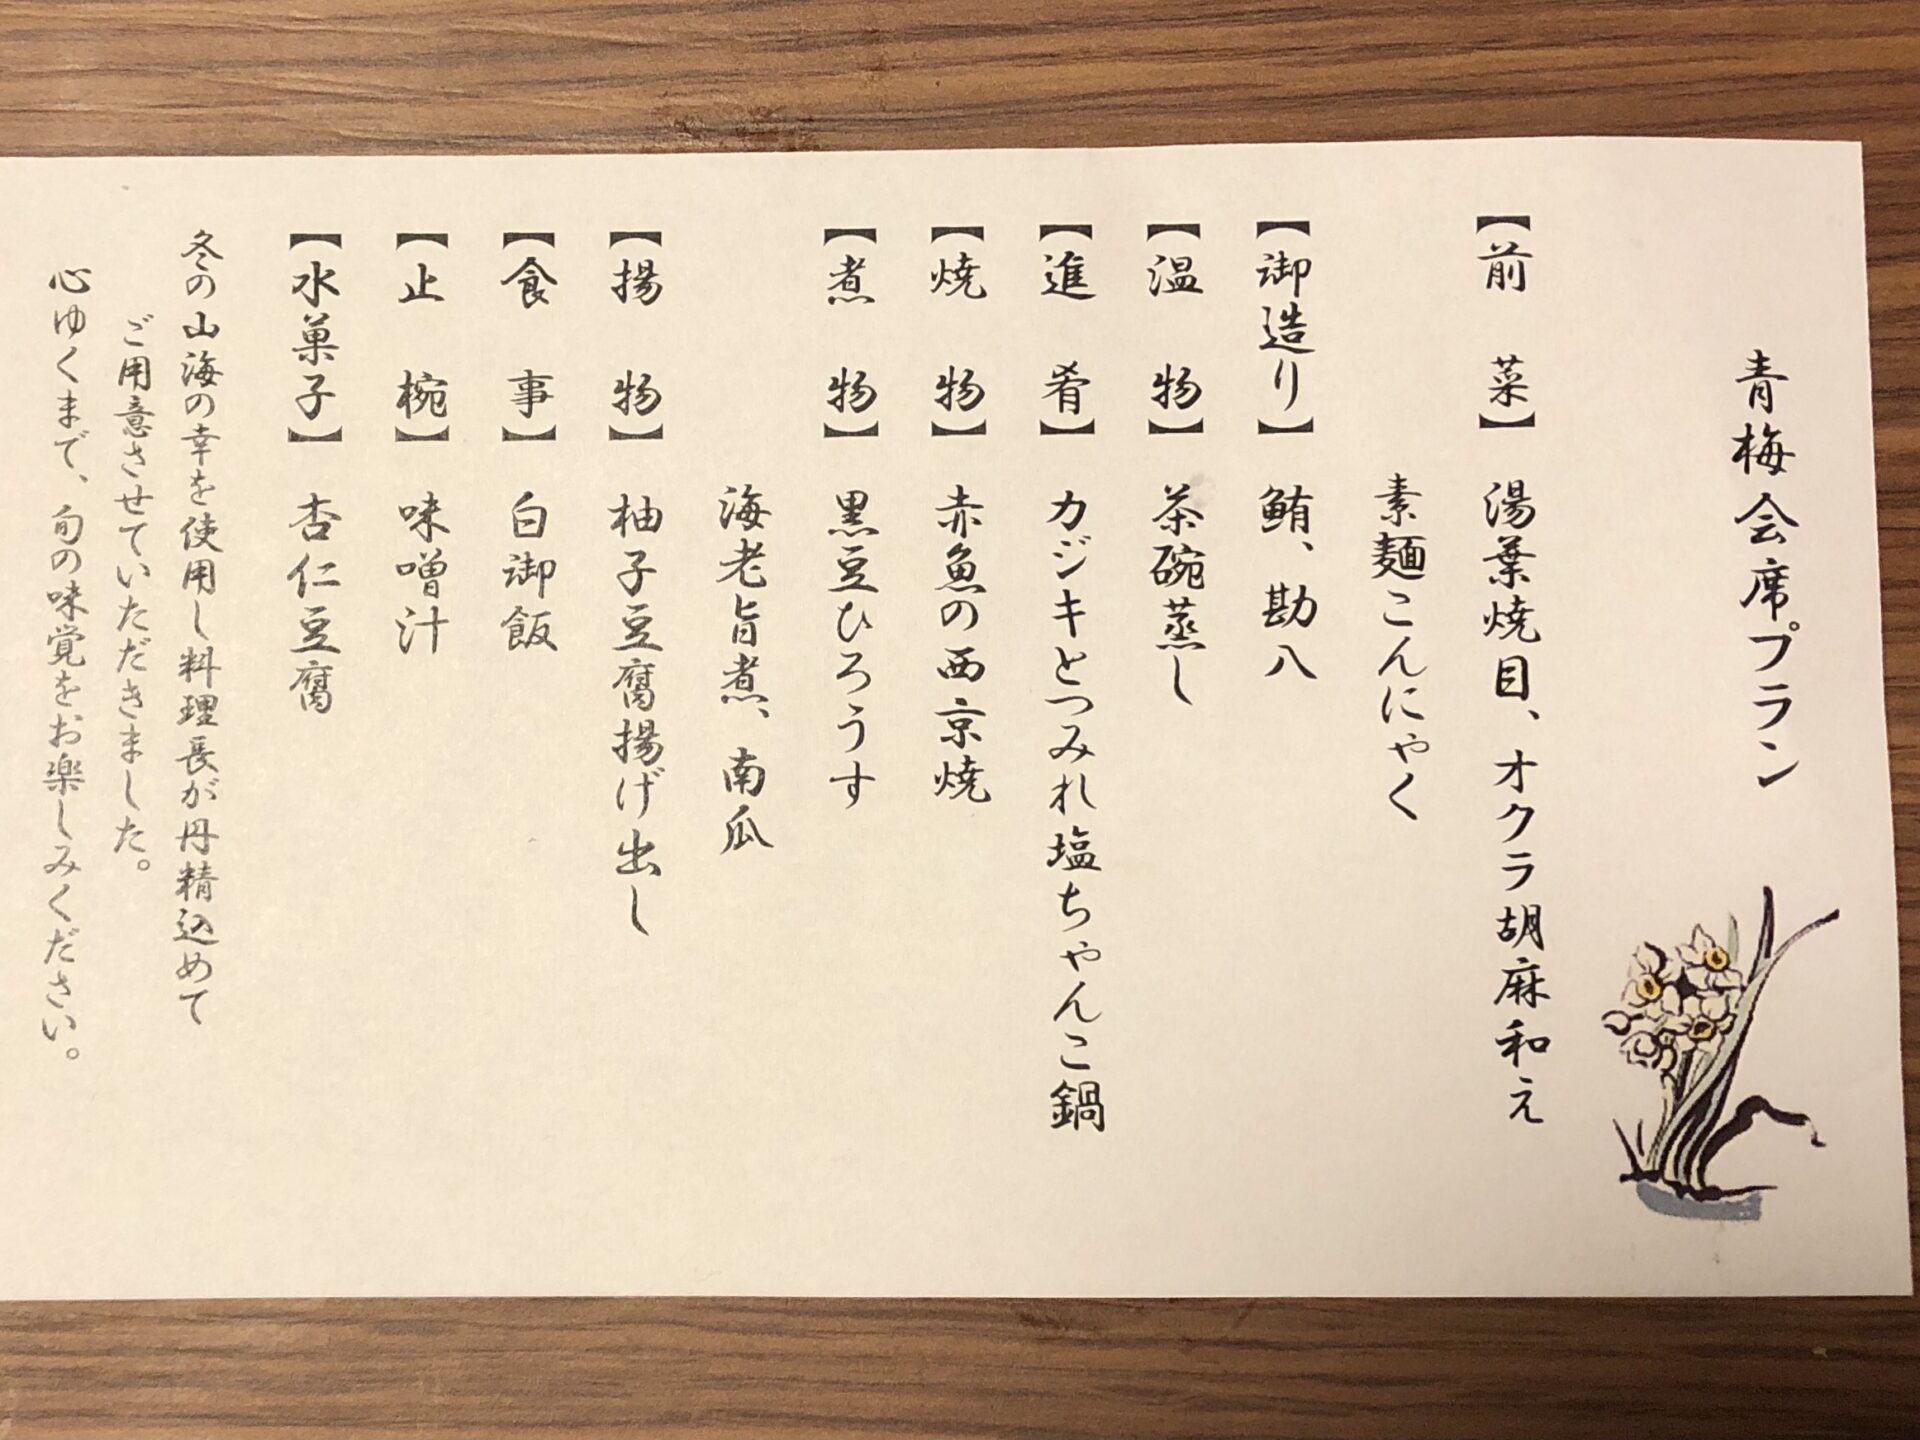 青梅会席プラン
【前 菜】 湯葉焼目、オクラ胡麻和え
素麺こんにゃく
【御造り】 鮪、勘八
【温 物】 茶碗蒸し
【進 肴】 カジキとつみれ塩ちゃんこ鍋
【焼 物】 赤魚の西京焼
【煮 物】 黒豆ひろうす
海老旨煮、南瓜
【揚 物】 柚子豆腐揚げ出し
【食 事】 白御飯
【止 椀】 味噌汁
【水菓子】 杏仁豆腐
冬の山海の幸を使用し料理長が丹精込めて
ご用意させていただきました。
心ゆくまで、旬の味覚をお楽しみください。